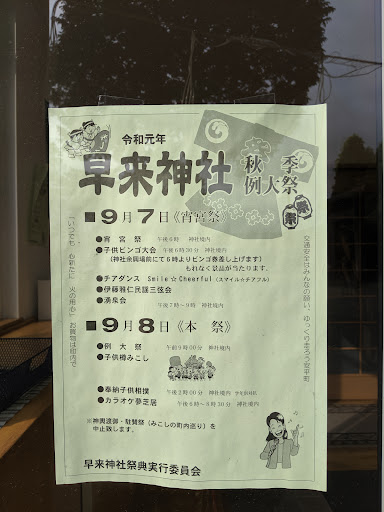 令和元年
早来神社
秋季
例大祭
■9月7日《宵宮祭》
●宵宮祭 午後6時 神社境内
●子供ビンゴ大会 午後6時30分 神社境内
(神社会興場前にて6時よりビンゴ券差し上げます)
もれなく景品が当たります。
●チアダンス Smile☆Cheerful(スマイル☆チアフル)
●伊藤雅仁民謡三弦会
●湧泉会
午後7時〜9時 神社境内
■9月8日《本祭》
●例大祭 午前9時00分 神社境内
●子供樽みこし
●奉納子供相撲 午後2時00分 神社境内
●カラオケ夢芝居 午後6時〜8時30分 神社境内
※神輿渡御・駐賛祭(みこしの町内巡り)を
中止致します。
早来神社祭典実行委員会
「いつでも 心新たに 火の用心」 お買物は町内で
交通安全はみんなの願い、ゆっくり走ろう安平町